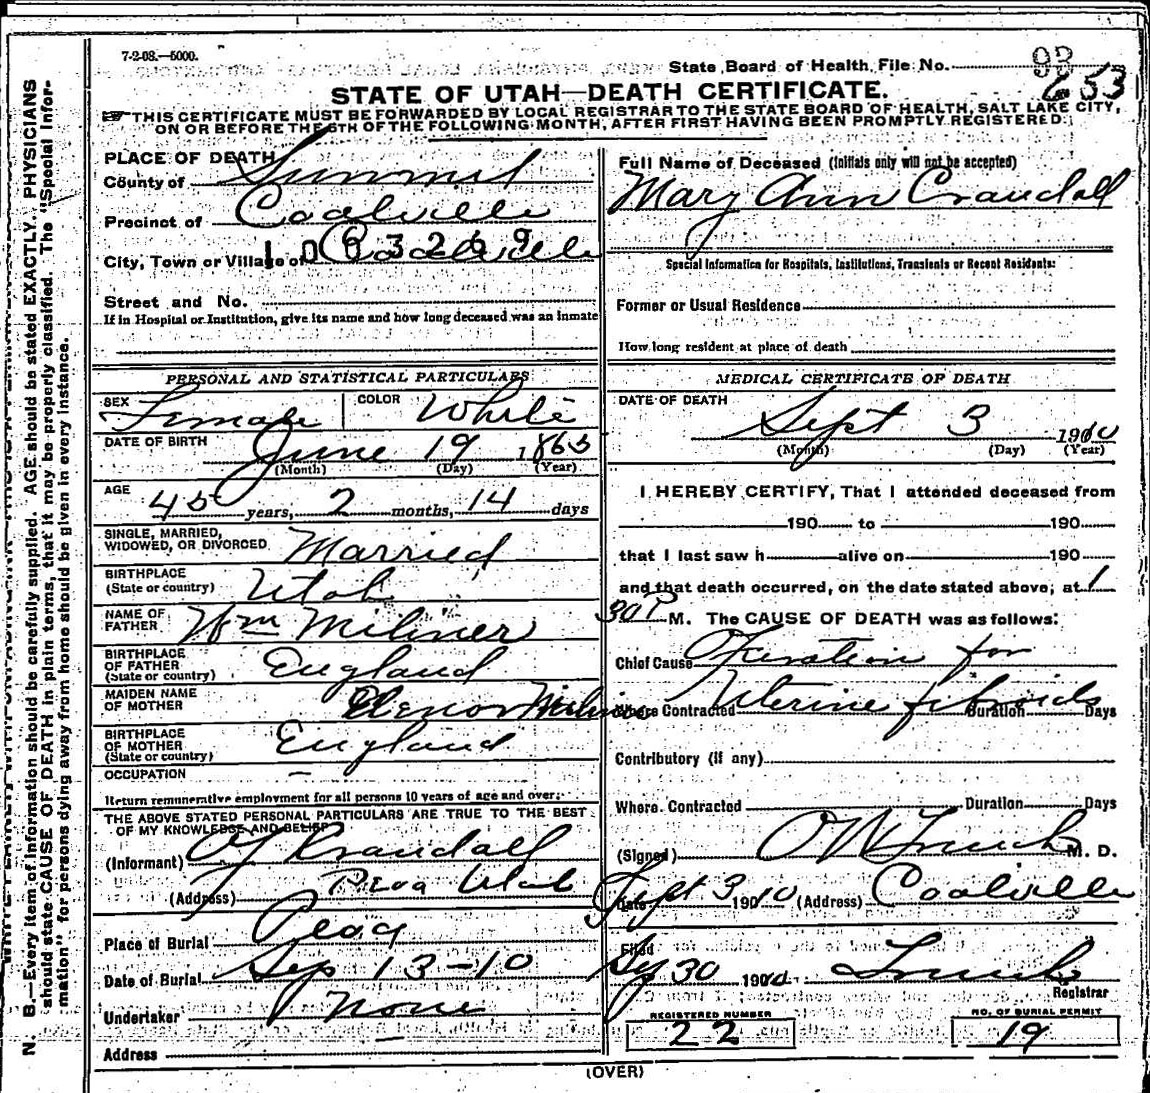 7-2-08.—5000.
State Board of Health, File No. 93
253
STATE OF UTAH—DEATH CERTIFICATE.
THIS CERTIFICATE MUST BE FORWARDED BY LOCAL REGISTRAR TO THE STATE BOARD OF HEALTH, SALT LAKE CITY,
ON OR BEFORE THE 5TH OF THE FOLLOWING MONTH, AFTER FIRST HAVING BEEN PROMPTLY REGISTERED.
PLACE OF DEATH
County of Summit
Precinct of Coalville
City, Town or Village of Coalville
Street and No.
If in Hospital or Institution, give its name and how long deceased was an inmate
PERSONAL AND STATISTICAL PARTICULARS
SEX Female COLOR White
DATE OF BIRTH June 19 1865
(Month) (Day) (Year)
AGE 45 years, 2 months, 14 days
SINGLE, MARRIED,
WIDOWED, OR DIVORCED Married
BIRTHPLACE
(State or country) Utah
NAME OF
FATHER Wm Milner
BIRTHPLACE
OF FATHER
(State or country) England
MAIDEN NAME
OF MOTHER Elenor Milner
BIRTHPLACE
OF MOTHER
(State or country) England
OCCUPATION —
Return remunerative employment for all persons 10 years of age and over.
THE ABOVE STATED PERSONAL PARTICULARS ARE TRUE TO THE BEST
OF MY KNOWLEDGE AND BELIEF
(Informant) Crandall
(Address) Peoa Utah
Place of Burial Peoa
Date of Burial Sep 13-10
Undertaker None
Address —
Full Name of Deceased (Initials only will not be accepted)
Mary Ann Crandall
Special Information for Hospitals, Institutions, Transients or Recent Residents:
Former or Usual Residence
How long resident at place of death
MEDICAL CERTIFICATE OF DEATH
DATE OF DEATH
Sept 3 1910
(Month) (Day) (Year)
I HEREBY CERTIFY, That I attended deceased from
190 to 190
that I last saw h alive on 190
and that death occurred, on the date stated above, at 1
30 P M. The CAUSE OF DEATH was as follows:
Chief Cause Operation for
Uterine fibroids
Where Contracted Duration Days
Contributory (if any)
Where Contracted Duration Days
(Signed) M. D.
Date Sept 3 1910 (Address) Coalville
Filed 30 1910
Registrar
REGISTERED NUMBER
22
NO. OF BURIAL PERMIT
19
(OVER)
N. B.—Every item of information should be carefully supplied. AGE should be stated EXACTLY. PHYSICIANS
should state CAUSE OF DEATH in plain terms, that it may be properly classified. The "Special Infor-
mation" for persons dying away from home should be given in every instance.